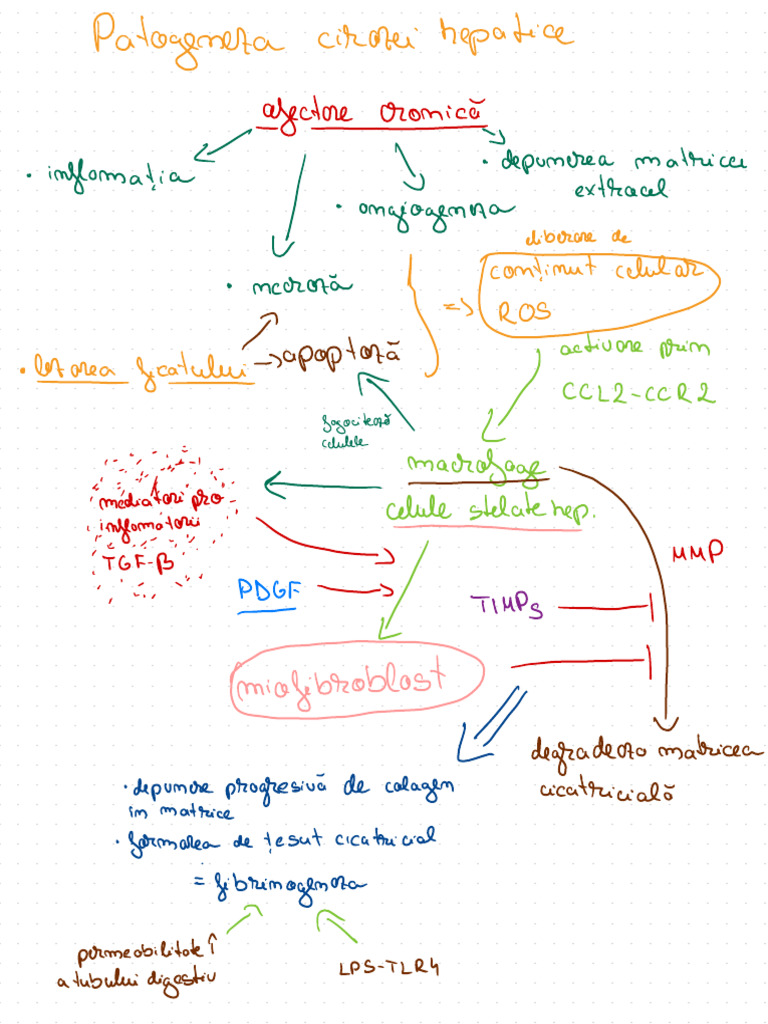 Patogeneza cirozei hepatice
afectare cronică
• inflamația
• depunerea matricei
extracel
• angiogeneza
eliberare de
conținut celular
ROS
• necroză
=>
activare prin
• lezarea ficatului
apoptoză
CCL2-CCR2
fagocitează
celulele
macrofage
celule stelate hep.
mediatori pro
inflamatorii
TGF-β
MMP
PDGF
TIMPs
miofibroblast
degradeaza matricea
cicatricială
• depunere progresivă de colagen
in matrice
• formarea de țesut cicatricial
= fibrinogeneza
permeabilitate ↑
a tubului digestiv
LPS-TLR4